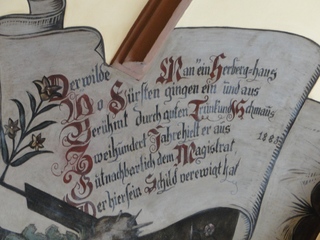 Der wilde Man" ein Herberg=haus
Wo Fürsten gingen ein und aus
Berühmt durch guten Trunk und Schmaus
Zweihundert Jahre hielt er aus 1685
Gutnachbarlich dem Magistrat,
Der hier sein Schild verewigt hat